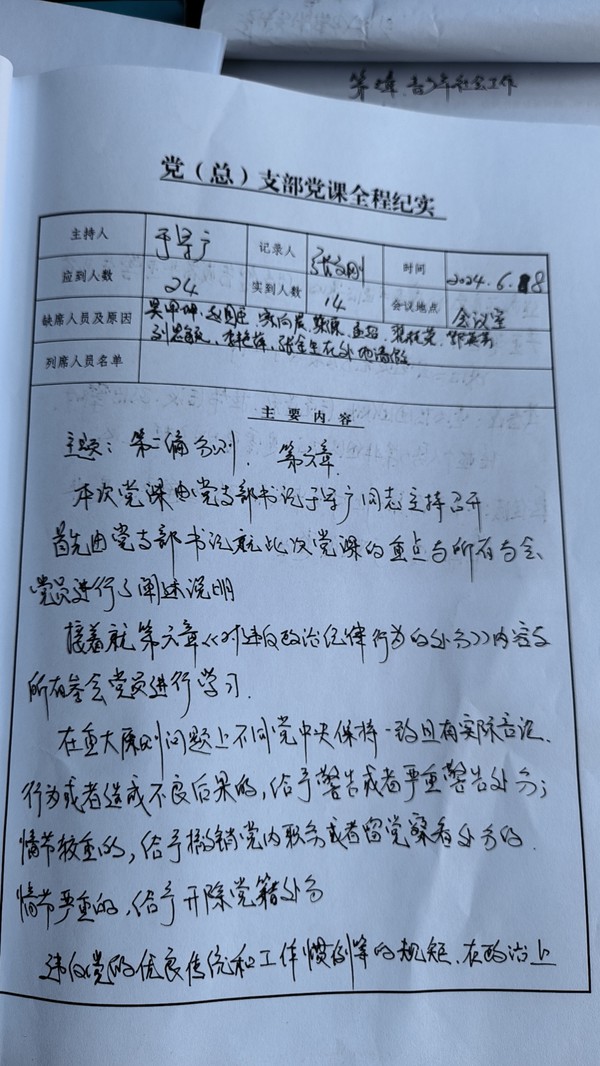 第六章 青少年社会工作
党（总）支部党课全程纪实
主持人 于学广 记录人 张文刚 时间 2024.6.18
应到人数 24 实到人数 14 会议地点 会议室
缺席人员及原因
在外地请假
列席人员名单
主要内容
主题：第二编分则. 第六章.
本次党课由党支部书记于学广同志主持召开
首先由党支部书记就此次党课的重点与所有与会
党员进行了阐述说明
接着就第六章《对违反政治纪律行为的处分》内容与
所有参会党员进行学习.
在重大原则问题上不同党中央保持一致且有实际言论、
行为或者造成不良后果的，给予警告或者严重警告处分；
情节较重的，给予撤销党内职务或者留党察看处分的.
情节严重的，给予开除党籍处分
违反党的优良传统和工作惯例等的规矩、在政治上